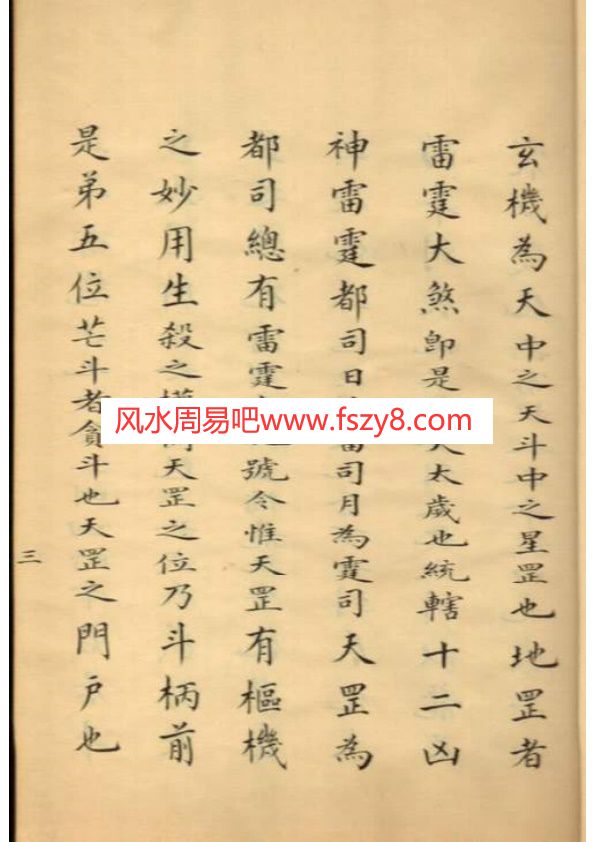 玄機為天中之天斗中之星罡也地罡者
雷霆大煞即是太歲也統轄十二凶
神雷霆都司日雷司月為霆司天罡為
都司總有雷霆號令惟天罡有樞機
之妙用生殺之天罡之位乃斗柄前
是弟五位芒斗者貪斗也天罡之門戶也
三
风水周易吧www.fszy8.com